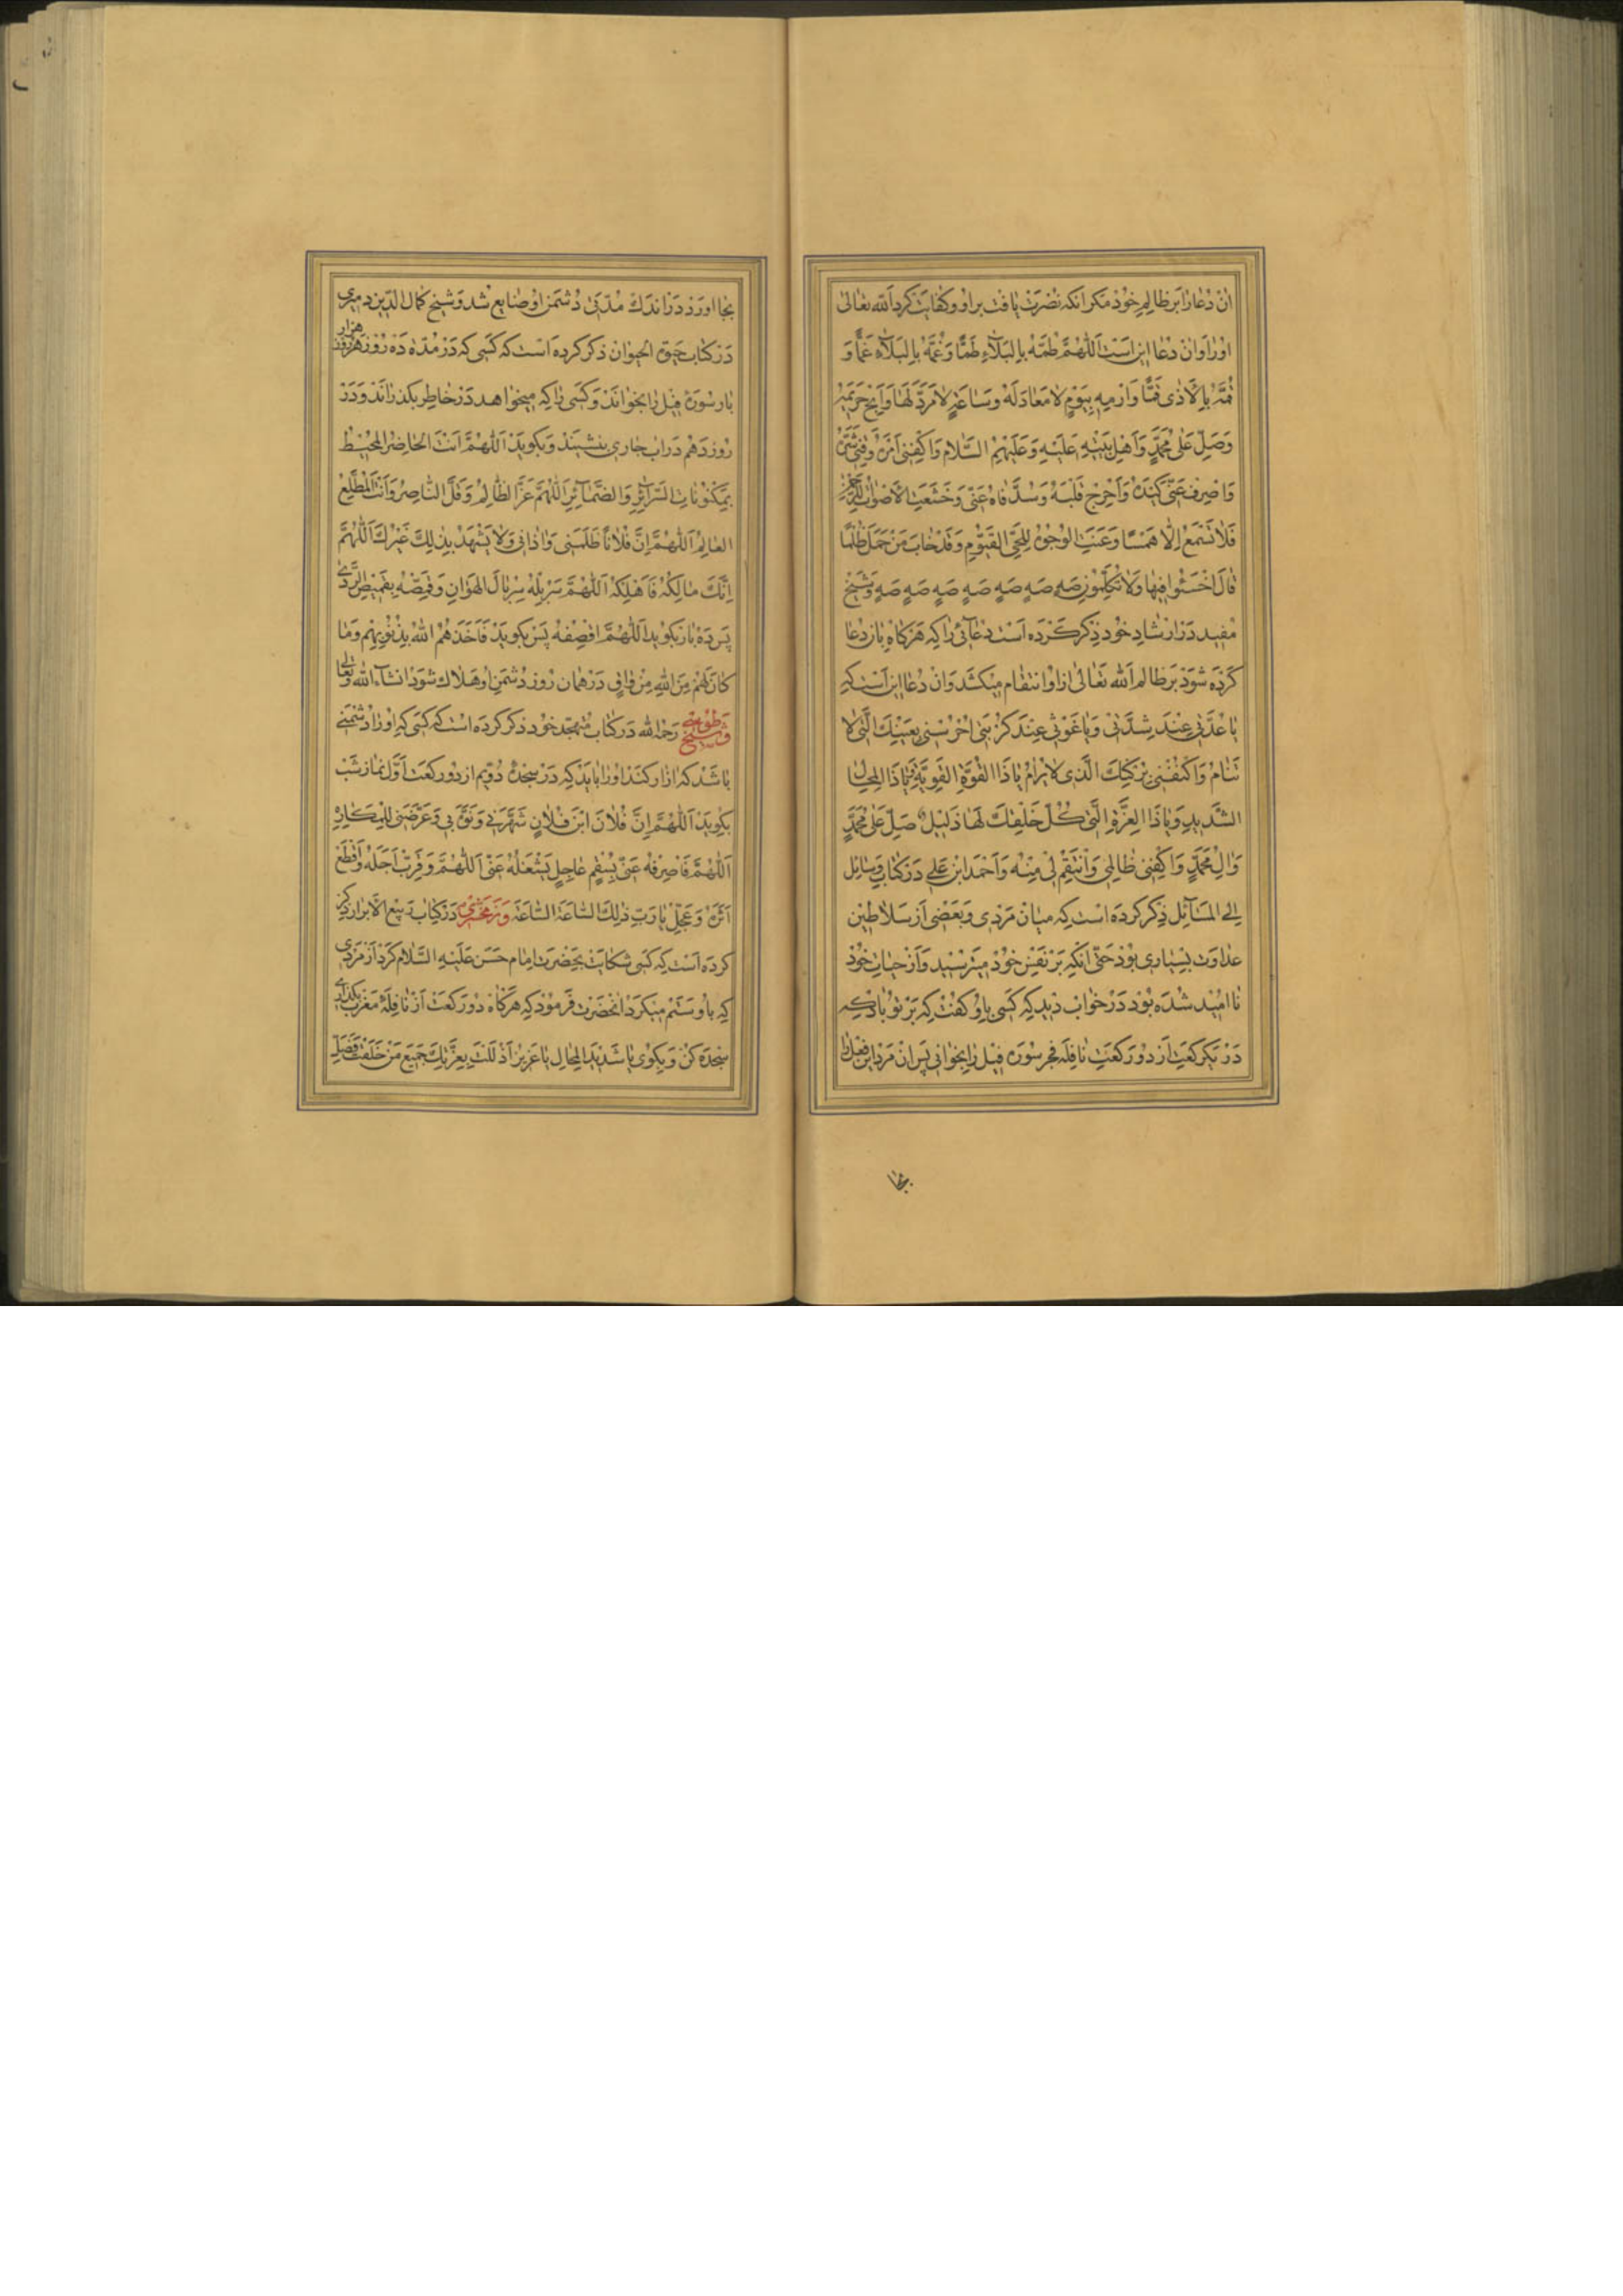 ان دعا را بر ظالم خود مکر آنکه نصرت یافت بر او و کفایت کرد الله تعالی
او را و ان دعا این است اللهم طمه بالبلاء طما و غمه بالبلاء غما و
قمه بالاذی قما و ارمه بیوم لا معاد له وساعة لا مرد لها و ابح حریمه
و صل علی محمد و اهل بیته علیه و علیهم السلام و اکفنی امره و قنی شره
و اصرف عنی کیده و احرج قلبه و سد فاه عنی و خشعت الاصوات للرحمن
فلا تسمع الا همسا و عنت الوجوه للحی القیوم و قد خاب من حمل ظلما
قال اخسئوا فیها ولا تکلمون صه صه صه صه صه صه صه و شیخ
مفید در ارشاد خود ذکر کرده است دعائی را که هرکاه بان دعا
کرده شود بر ظالم الله تعالی ازاو انتقام میکشد و ان دعا این است که
یا عدتی عند شدتی و یا غوثی عند کربتی احرسنی بعینک التی لا
تنام و اکنفنی برکنک الذی لا یرام یا ذا القوة القویة یا ذا المحال
الشدید و یا ذا العزة التی کل خلقک لها ذلیل صل علی محمد
و ال محمد و اکفنی ظالمی و انتقم لی منه و احمد ابن علی در کتاب وسایل
الی المسائل ذکر کرده است که میان مردی و بعضی از سلاطین
عداوت بسیاری بود حتی انکه بر نفس خود میترسید و از حیات خود
نا امید شده بود در خواب دید که کسی باو کفت که بر تو باد که
در یکرکعت از دو رکعت نافله فجر سوره فیل را بخوانی پس ان مرد این فعل را
بجا
بجا اورد در اندک مدتی دشمن او ضایع شد و شیخ کمال الدین دمیری
در کتاب حیوة الحیوان ذکر کرده است که کسی که در مدة ده روز هر روز هزار
بار سوره فیل را بخواند و کسی را که میخواهد در خاطر بکذراند و در
روز دهم در اب جاری بنشیند و بکوید اللهم انت الحاضر المحیط
بمکنونات السرائر و الضمائر اللهم عز الظالم و قل الناصر و انت المطلع
العالم اللهم ان فلانا ظلمنی و اذانی ولا یشهد بذلک غیرک اللهم
انک مالکه فاهلکه اللهم سربله سربال الهوان و قمصه بقمیص الردی
پس ده بار بکوید اللهم اقصفه پس بکوید فاخذهم الله بذنوبهم وما
کان لهم من الله من واق در همان روز دشمن او هلاک شود انشاء الله تعالی
و شیخ طوسی رحمه الله در کتاب متهجد خود ذکر کرده است که کسی که او را دشمنی
باشد که ازار کند او را باید که در سجدهٔ دویم از دو رکعت اول نماز شب
بکوید اللهم ان فلان ابن فلان شهرنی و نوه بی و عرضنی للمکاره
اللهم فاصرفه عنی بسقم عاجل یشغله عنی اللهم و قرب اجله و اقطع
اثره و عجل یا رب ذلک الساعة الساعة و زمخشری در کتاب ربیع الابرار ذکر
کرده است که کسی شکایت بحضرت امام حسن علیه السلام کرد از مردی
که باو ستم میکرد انحضرت فرمود که هرکاه دو رکعت از نافلهٔ مغرب بکذاری
سجده کن و بکوی یا شدید المحال یا عزیز اذللت بعزتک جمیع من خلقت فصل